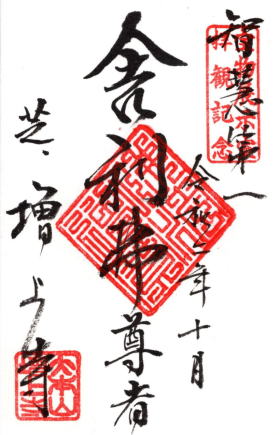 智慧第一
令和二年十月
舎利弗尊者
芝、増上寺
拝観記念
大本山